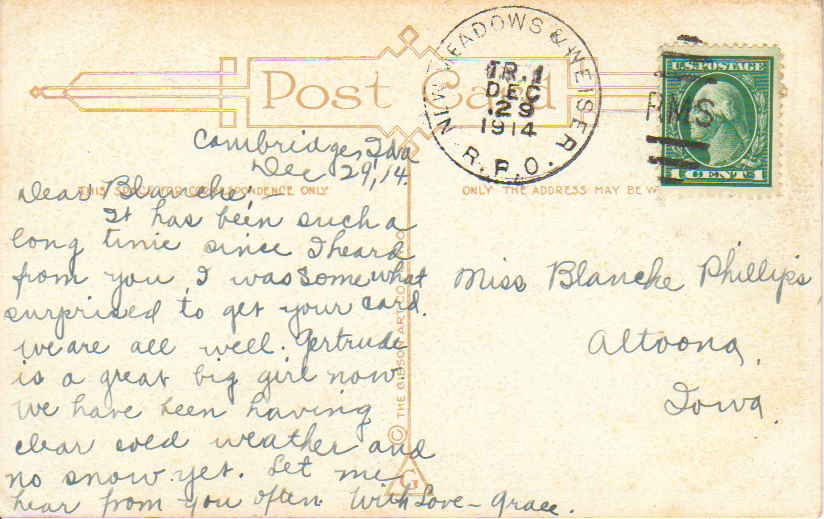 Post Card
NEW MEADOWS & WEISER
TR. 1
DEC
29
1914
R.P.O.
RMS
U.S. POSTAGE
1 CENT 1
Cambridge, Ida
Dec 29, 14.
THIS SPACE FOR CORRESPONDENCE ONLY
ONLY THE ADDRESS MAY BE W
Dear Blanche; -
It has been such a
long time since I heard
from you, I was somewhat
surprised to get your card.
we are all well. Gertrude
is a great big girl now
we have been having
clear cold weather and
no snow yet. Let me
hear from you often. With Love - Grace.
© THE GIBSON ART CO.
G
Miss Blanche Phillips,
Altoona,
Iowa.